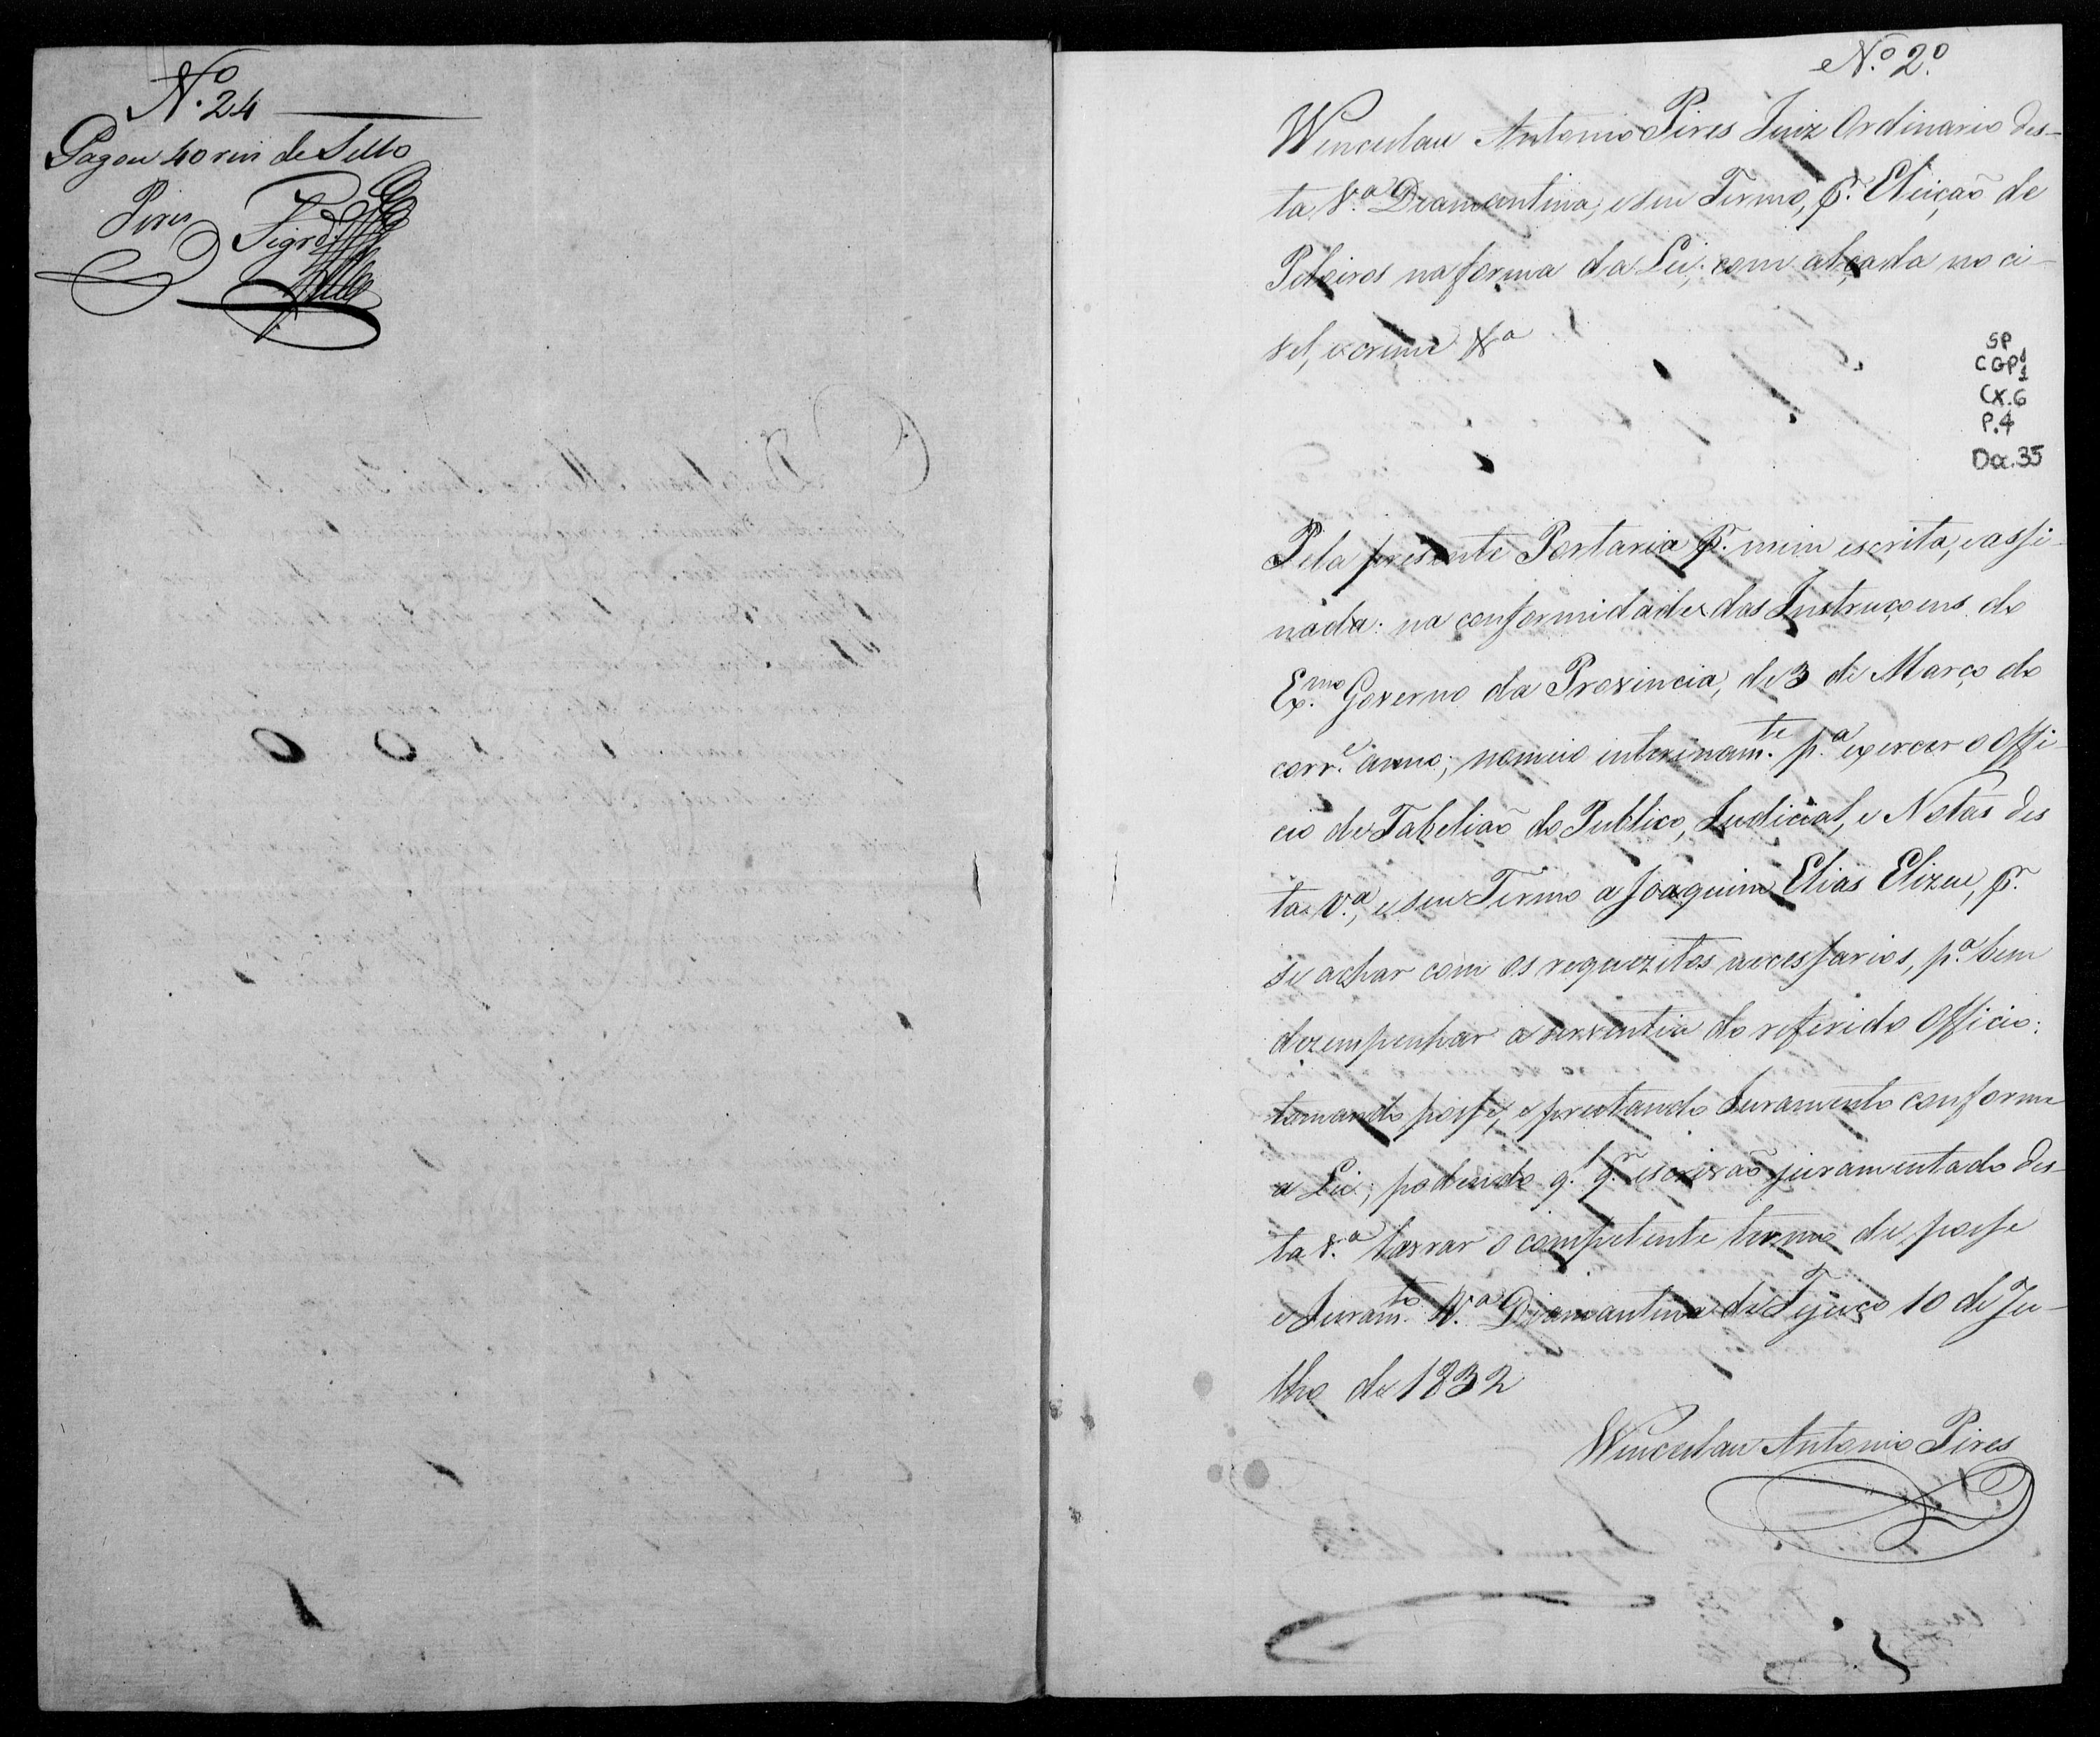 N.º 24
Pagou 40 reis de Sello
Pires
N.º 2.º
Wencesláu Antonio Pires Juiz Ordinario des-
ta V.ª Diamantina, e seu Termo, p.r Eleiçaõ de
Peloiros na forma da Lei; com alçada no ci-
vel, e crime &ª
SP
CGP1
1
Cx.6
P.4
Doc.35
Pela presente Portaria p.r mim escrita, e assi-
nada: na conformidade das Instruçoens do
Ex.mo Governo da Provincia, de 3 de Março do
corr.e anno; nomeio interinam.te p.ª exercer o Offi-
cio de Tabeliaõ do Publico, Judicial, e Notas des
ta V.ª, e seu Termo a Joaquim Elias Elizeu, p.r
se achar com os requezitos necessarios, p.ª bem
dezempenhar a serventia do referido Officio:
tomando posse, e prestando Juramento conforme
a Lei; podendo q.l q.r escrivaõ juramentado des-
ta V.ª lavrar o competente termo de posse
e Juram.to V.ª Diamantina do Tejuco 10 de Ju-
lho de 1832
Wencesláu Antonio Pires